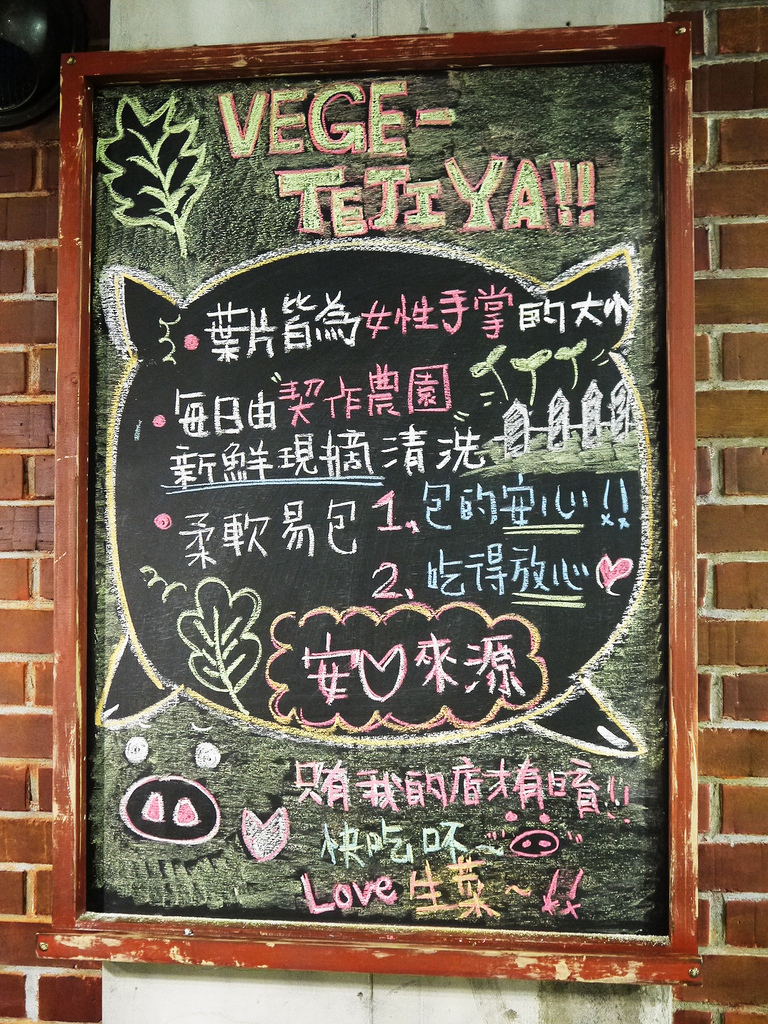 VEGE-
TEJIYA!!
•葉片皆為女性手掌的大小
•每日由"契作農園"
新鮮現摘清洗
•柔軟易包 1、包的安心!!
2、吃得放心♡
安♡來源
只有我的店才有唷!!
快吃吥~
Love 生菜~!!